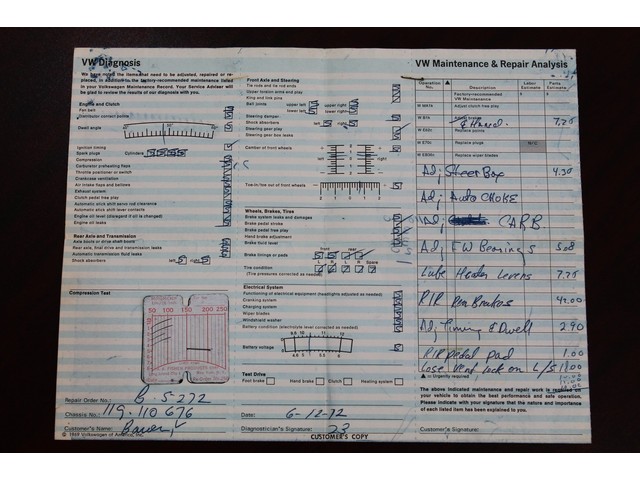 VW Diagnosis
We have noted the items that need to be adjusted, repaired or re-
placed, in addition to the factory-recommended maintenance listed
in your Volkswagen Maintenance Record. Your Service Adviser will
be glad to review the results of our diagnosis with you.
Engine and Clutch
Fan belt
Distributor contact points
Dwell angle
Ignition timing
Spark plugs Cylinders
Compression
Carburetor preheating flaps
Throttle positioner or switch
Crankcase ventilation
Air intake flaps and bellows
Exhaust system
Clutch pedal free play
Automatic stick shift servo rod clearance
Automatic stick shift lever contacts
Engine oil level (disregard if oil is changed)
Engine oil leaks
Rear Axle and Transmission
Axle boots or drive shaft boots
Rear axle, final drive and transmission leaks
Automatic transmission fluid leaks
Shock absorbers left right
Compression Test
50 100 150 200 250
Repair Order No.: B 5-272
Chassis No.: 119.110 676
Customer's Name:
© 1969 Volkswagen of America, Inc.
Front Axle and Steering
Tie rods and tie rod ends
Upper torsion arms end play
King and link pins
Ball joints upper left upper right
lower left lower right
Steering damper
Shock absorbers left right
Steering gear play
Steering gear box leaks
Camber of front wheels
left right
Toe-in/toe out of front wheels
Wheels, Brakes, Tires
Brake system leaks and damages
Brake pedal stroke
Brake pedal free play
Hand brake adjustment
Brake fluid level
front rear
Brake linings or pads L R L R
Tire condition L R L R Spare
(Tire pressures corrected as needed)
Electrical System
Functioning of electrical equipment (headlights adjusted as needed)
Cranking system
Charging system
Wiper blades
Windshield washer
Battery condition (electrolyte level corrected as needed)
Battery voltage
Test Drive
Foot brake Hand brake Clutch Heating system
Date: 6-12-72
Diagnostician's Signature: 23
CUSTOMER'S COPY
VW Maintenance & Repair Analysis
Operation No. Description Labor Estimate Parts Estimate
Factory-recommended
VW Maintenance $ $
Adjust clutch free play
7.25
Replace points
Replace plugs N/C
Replace wiper blades
Adj Steer Box 4.30
Adj Auto CHOKE
Adj CARB.
Adj FW Bearings 5.08
Lube Levers 7.25
R/R Brakes
Adj Timing & Dwell 2.90
R/R pedal pad 1.00
Lose Vent lock on L/S 11.00
▲ or Urgently required
The above indicated maintenance and repair work is required on
your vehicle to obtain the best performance and safe operation.
Please indicate with your signature that the nature and importance
of each listed item has been explained to you.
Customer's Signature: